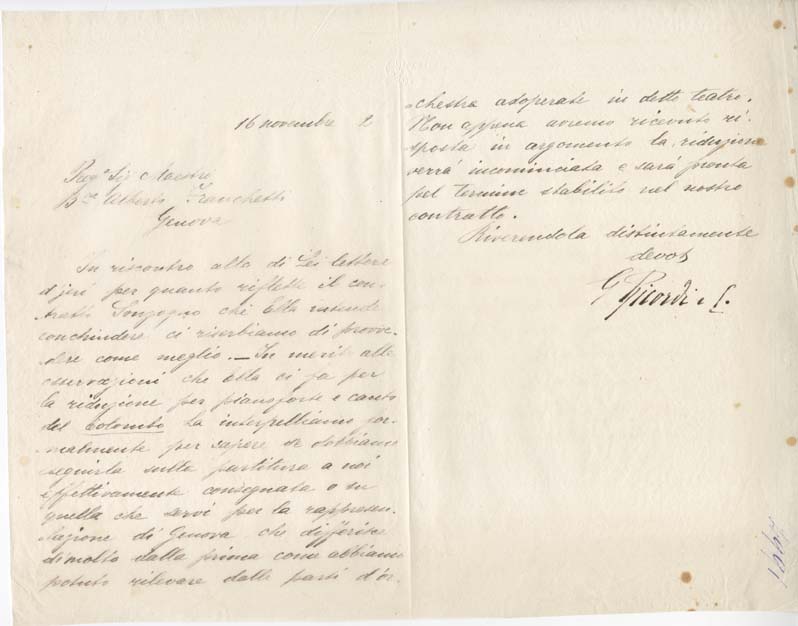 16 novembre 2
Preg.º Sig. Maestro
B.ne Alberto Franchetti
Genova
In riscontro alla di Lei lettera
d'jeri per quanto riflette il con-
tratto Sonzogno che Ella intende
conchiudere ci riserbiamo di provve-
dere come meglio. — In merito alle
osservazioni che Ella ci fa per
la riduzione per pianoforte e canto
del Colombo La interpelliamo for-
malmente per sapere se dobbiamo
eseguirla sulla partitura a noi
effettivamente consegnata o su
quella che servì per la rappresen-
tazione di Genova che differisce
di molto dalla prima come abbiamo
potuto rilevare dalle parti d'or-
chestra adoperate in detto teatro.
Non appena avremo ricevuto ri-
sposta in argomento la riduzione
verrà incominciata e sarà pronta
pel termine stabilito nel nostro
contratto.
Riverendola distintamente
devot
G Ricordi e C.